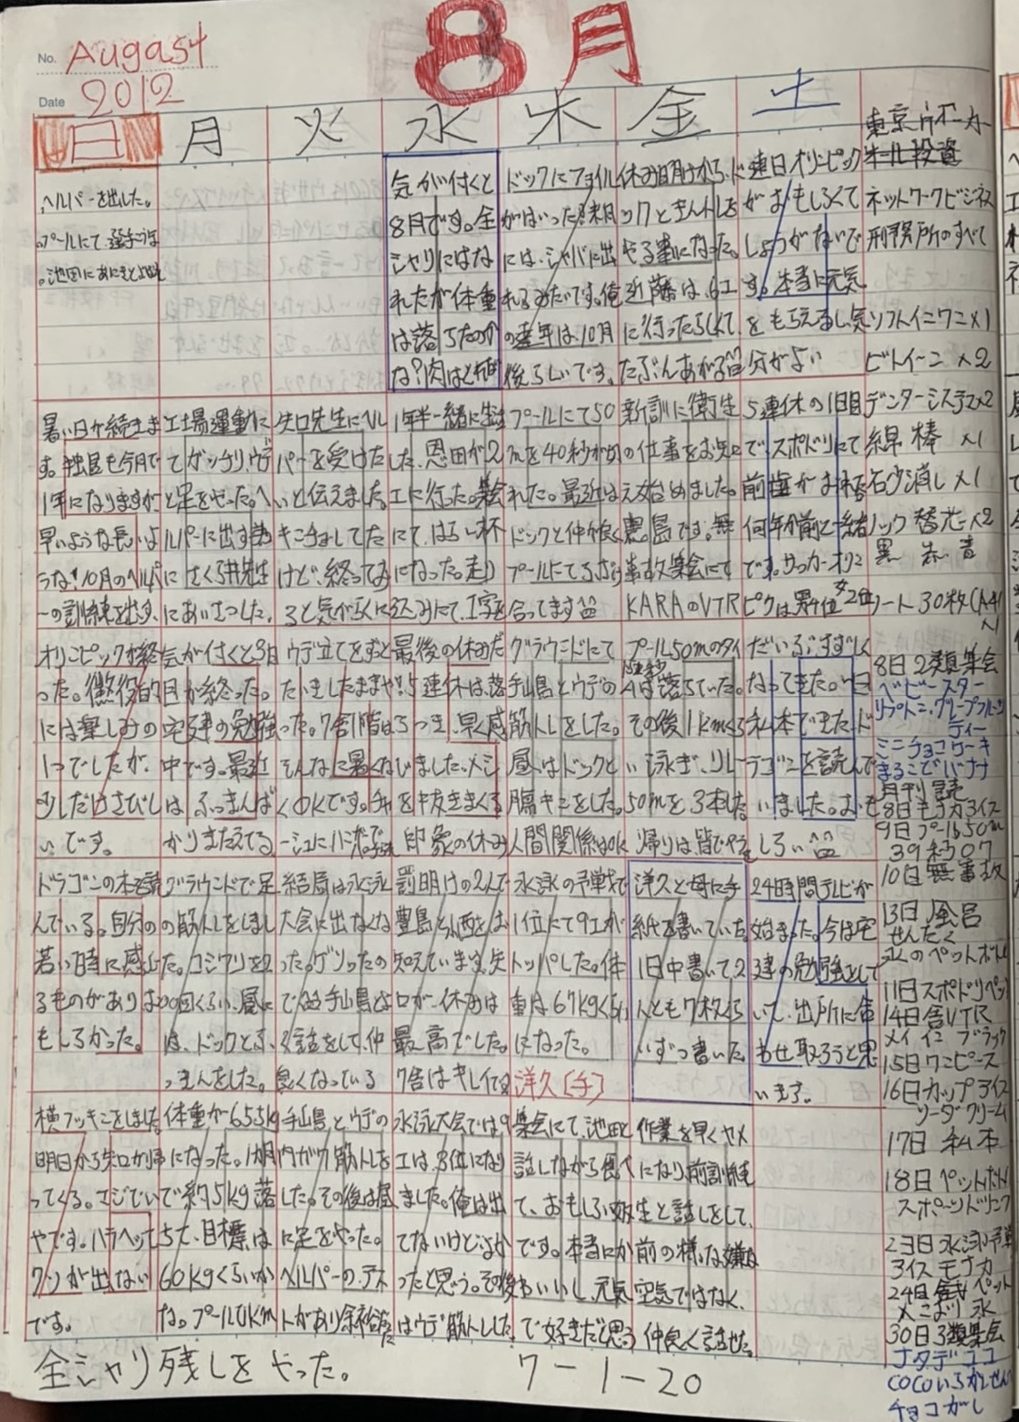 No. Augast
8月
Date 2012
日 月 火 水 木 金 土
東京
ヘルパーを出した。
プールにて
気が付くと
8月です。全
シャリにはな
れたが体重
は落ちたのか
な?肉は
ドックにアヨイル
がはいった。来月
には、シャバに出
れるみたいです。俺
の来年は、10月
後らしいです。
休み明けから、ド
ックときんトレを
やる事になった。
近藤は、6工
に行ったらしくて、
たぶんあがる
連日オリンピック
がおもしろくて
しょうがないで
す。本当に元気
をもらえるし、気
分がよい
ネットワークビジネス
刑務所のすべて
ソフトインワン×1
ビトイーン×2
暑い日が続きま
す。独居も今月で
1年になりますが
早いような長いよ
うな!10月のヘルパ
ーの訓練を出す。
工場運動に
てガッチリ、ウデ
と足をやった。ヘ
ルパーに出す為
にさくら井先生
にあいさつした。
矢口先生にヘル
パーを受けた
いと伝えました。
キンチョーしてた
けど、終ってみ
ると気がらくに
1年半一緒に生活
した、恩田が2
工に行った。集会
にて、はらい杯
になった。走り
込みにて、1文字を
プールにて50
mを40秒が切
れた。最近は
ドックと仲良く
プールにて
合ってます
新訓に衛生
の仕事をお知
え始めました。
鹿島です。無
事故集会にて
KARAのVTR
5連休の1日目
でスポドリにて
前歯がまっ
何年か前と一緒
です。サッカーオリン
ピックは男4位 女2位
デンターシステマ×2
綿棒 ×1
石ケン消し×1
ノック替芯×2
黒 赤 青
ノート30枚(A4)
×1
オリンピックが終
った。懲役的
には楽しみの
1つでしたが、
少しだけさびし
いです。
気が付くと3日
目が終った。
宅建の勉強
中です。最近
は、ふっきんば
かりきたえてる
ウデ立てをずっと
たいきしたままや
った。7舎1階は
そんなに暑くな
くOKです。チャ
最後の休みだ
!5連休は、落
ちつき、早く感
じました。メシ
を中抜ききまくる
印象の休み
グラウンドにて
手山島とウデの
筋トレをした。
昼はドックと
腸キンをした。
人間関係はOK
プール50mのタイ
ムは落ちていた。
その後1kmくら
い泳ぎ、リレー
50mを3本した
帰りは、皆でやる
だいぶすずしく
なってきた。今日
私本できたド
ラゴンを読んで
いました。おも
しろい
8日2類集会
ベビースター
リプトン、グレープフルーツ
ティー
ミニチョコケーキ
まるごとバナナ
月刊
8日モナカアイス
9日プール50m
39秒07
10日無事故
13日風呂
せんたく
氷のペットボトル
11日スポドリペット
14日舎VTR
メイインブラック
15日ワンピース
16日カップアイス
ソーダクリーム
17日私本
18日ペットボトル
スポーツドリンク
23日水泳予選
アイスモナカ
24日 ペット
30日3類集会
ナタデココ
COCOいろかしせん
チョコがし
ドラゴンの本を読
んでいる。自分の
若い時に感じ
るものがありお
もしろかった。
グラウンドで足
の筋トレをしまし
た。コシワリを2
00回くらい、昼に
は、ドックとふ
っきんをした。
結局は水泳
大会に出なくな
った。
でも手山島とよ
く話をして、仲
良くなっている
罰明けの2人で
豊島と小西とは
知えています。矢
口が、休みは
最高でした。
7舎はキレイです
水泳の予戦で
1位にて9工が
トッパした。体
重は67kgくらい
になった。
洋久〔手〕
洋久と母に手
紙を書いていた。
1日中書いて2
人とも7枚くら
いずつ書いた。
24時間テレビが
始まった。今は宅
建の勉強をして
いて、出所に使
も仕取ろうと思
います。
横フッキンをしました
明日から矢口が帰
ってくる。マジでい
やです。ハラヘッて
クソが出ない
です。
体重が65.5kg
になった。1か月
で約5kg落
ちて、目標は
60kgくらいか
な。プール1km
手山島とウデの
内がわ筋トレを
した。その後は昼
に足をやった。
ヘルパーの、テス
トがあり余裕だ
水泳大会では9
工は、3位になり
ました。俺は出
てないけどよか
ったと思う。その後
はウデ筋トレした。
集会にて、池田と
話しながら食べ
て、おもしろい奴
です。本当にか
わいいし、元気
で好きだと思う
作業を早くヤメ
になり、前訓練
生と話しをして、
前の様な嫌な
空気ではなく、
仲良く話せた。
全シャリ残しをやった。
7-1-20